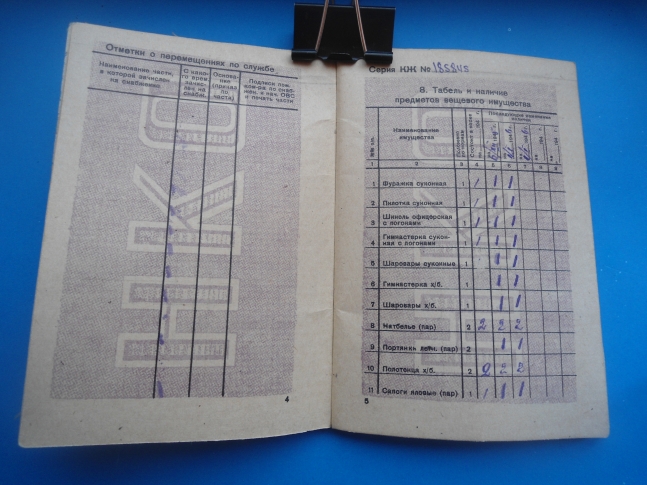 Отметки о перемещениях по службе
Наименование части,
в которой зачислен
на снабжение
С како-
го врем.
зачис-
лен на
снабж.
Основа-
ние
(приказ
по
части)
Подписи
по снаб-
и нач. ОВС
и печать части
НКО
4
Серия КЖ № 185845
8. Табель и наличие
предметов вещевого имущества
Наименование
имущества
1 2 3 4 5 6 7 8 9
1 Фуражка суконная 1 / 1 1
2 Пилотка суконная 1 / 1 1
3 Шинель офицерская
с погонами 1 1 1 1
4 Гимнастерка сукон-
ная с погонами 1 / 1 1
5 Шаровары суконные 1 1
6 Гимнастерка х/б. 1 1
7 Шаровары х/б. 1 1
8 Натбелье (пар) 2 2 2 2
9 Портянки летн. (пар) 2 1 1
10 Полотенца х/б. 2 2 2 2
11 Сапоги яловые (пар) 1 / 1 1
5